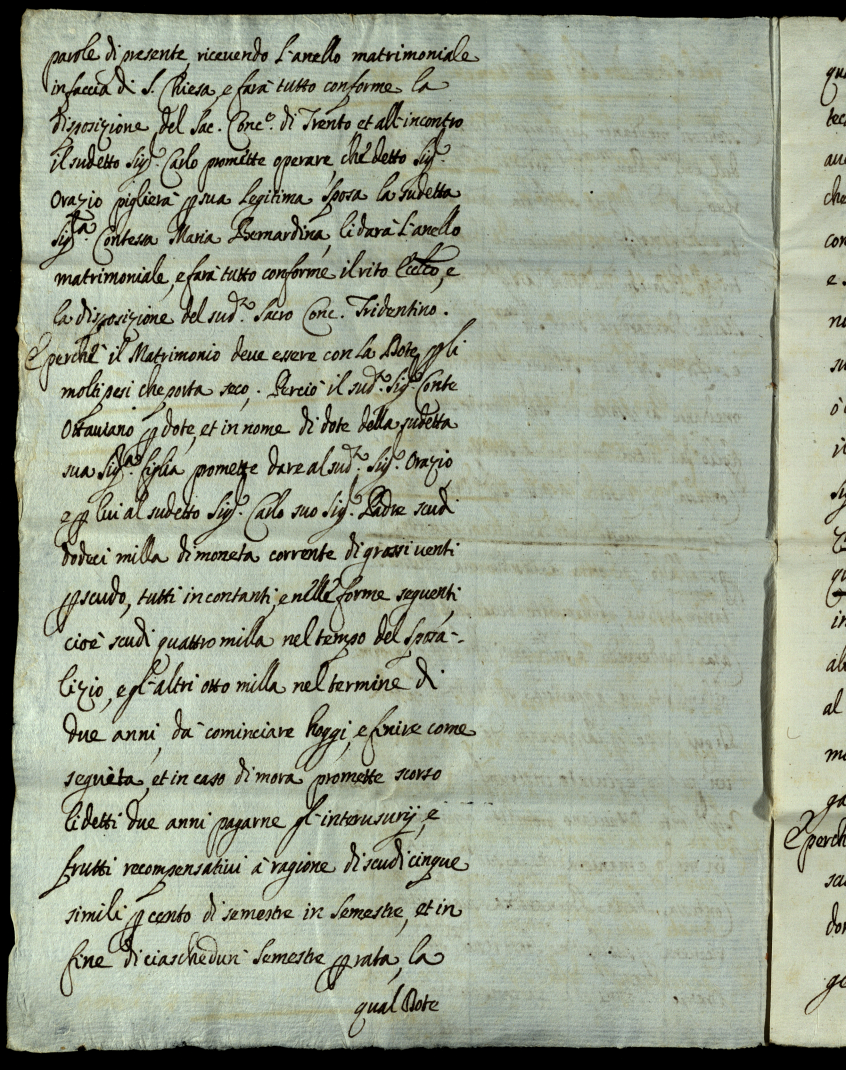 parole di presente, ricevendo l'anello matrimoniale
in faccia di S. Chiesa, e farà tutto conforme la
disposizione del Sac. Conc.º di Trento et all'incontro
il sudetto Sig.r Carlo promette operare, che detto Sig.r
Orazio piglierà p sua legitima sposa la sudetta
Sig.ra Contessa Maria Bernardina, li darà l'anello
matrimoniale, e farà tutto conforme il rito Eccl.co, e
la disposizione del sud.º Sacro Conc. Tridentino.
E perche il Matrimonio deve essere con la Dote p gli
molti pesi che porta seco. Perciò il sud.º Sig.r Conte
Ottaviano p dote, et in nome di dote della sudetta
sua Sig.ra figlia promette dare al sud.º Sig.r Orazio
e p lui al sudetto Sig.r Carlo suo Sig.r Padre scudi
dodeci milla di moneta corrente di grossi venti
p scudo, tutti in contanti, e nelle forme seguenti,
cioè scudi quattro milla nel tempo del sposa-
lizio, e gl'altri otto milla nel termine di
due anni, da cominciare hoggi, e finire come
seguèta, et in caso di mora promette scorso
li detti due anni pagarne gl'interusurij, e
frutti recompensativi à ragione di scudi cinque
simili p cento di semestre in semestre, et in
fine di ciascheduri semestre p rata, la
qual Dote
qu
tec
au
che
con
e
no
su
ò
il
Sig
qu
in
al
al
mo
ga
E perch
scu
do
ge